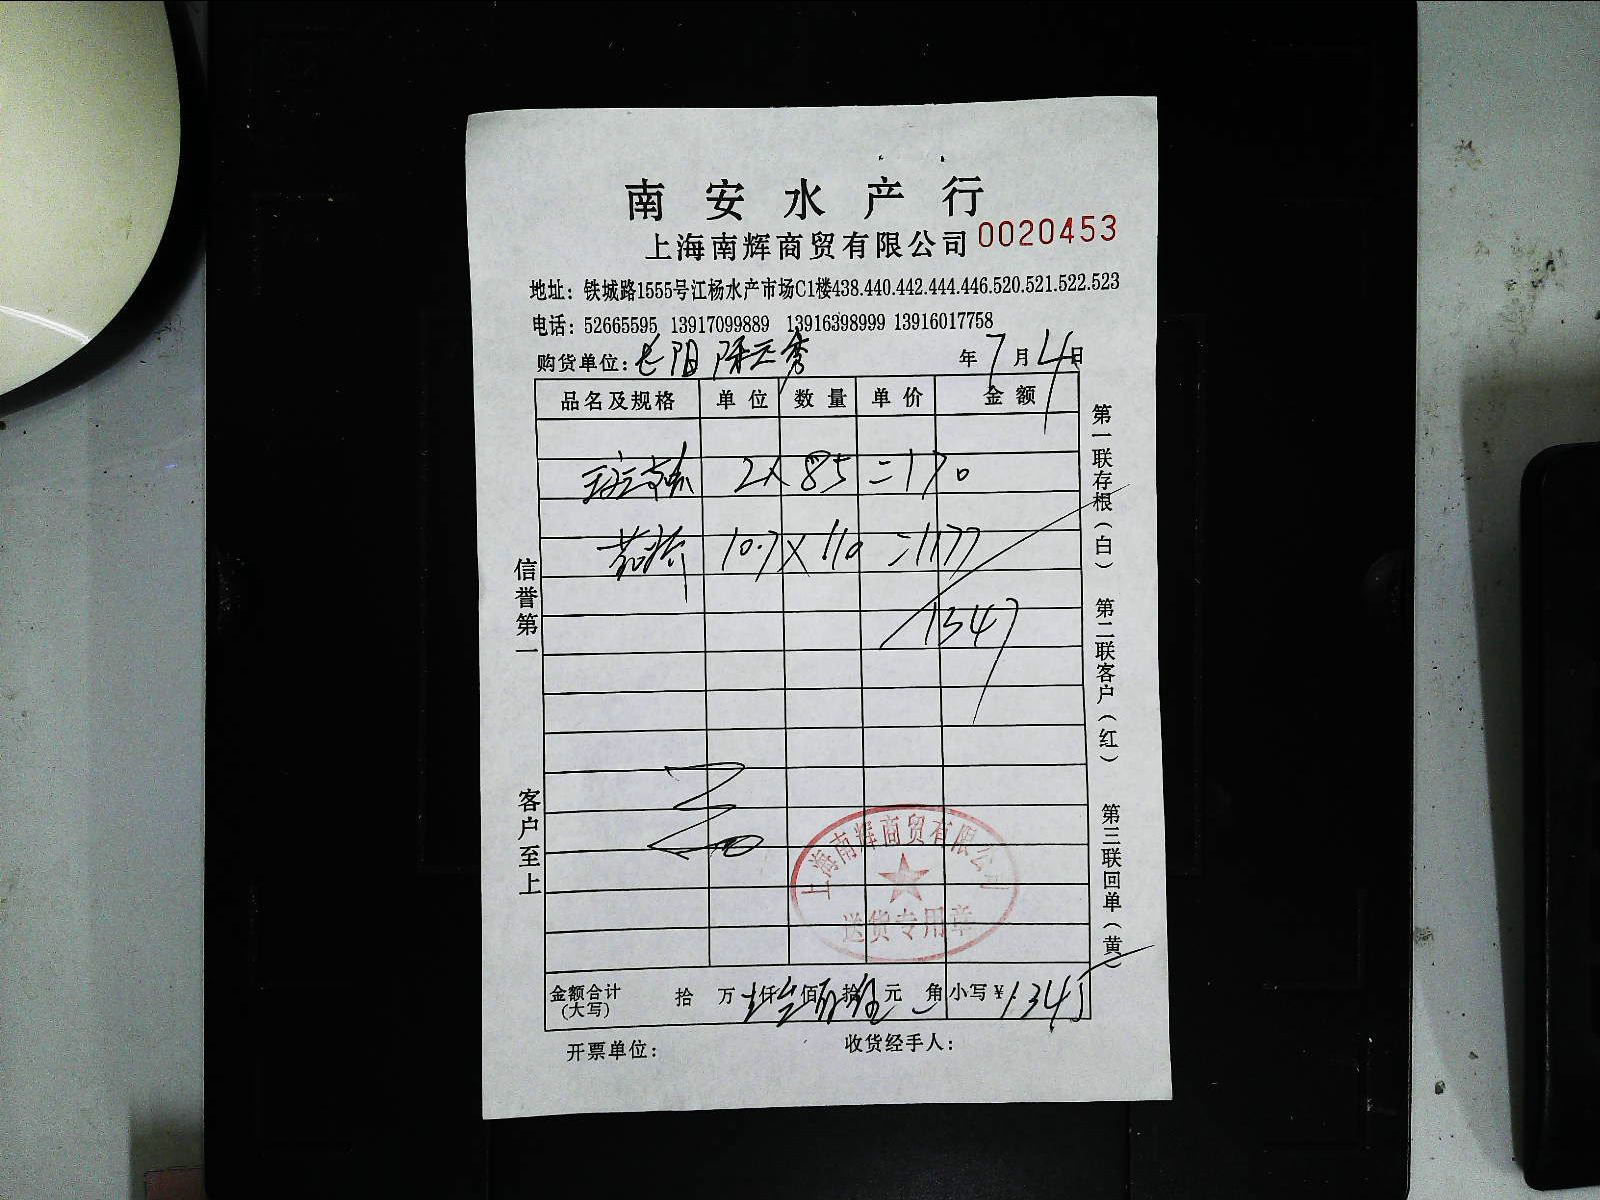 南安水产行
上海南辉商贸有限公司 0020453
地址：铁城路1555号江杨水产市场C1楼438.440.442.444.446.520.521.522.523
电话：52665595 13917099889 13916398999 13916017758
购货单位： 年 7 月 4 日
品名及规格 单位 数量 单价 金额
2 x 85 = 170
10.7 x 110 = 1177
1347
信誉第一
客户至上
第一联存根（白） 第二联客户（红） 第三联回单（黄）
上海南辉商贸有限公司
送货专用章
金额合计（大写） 拾 万 仟 佰 拾 元 角 小写￥1345
开票单位： 收货经手人：